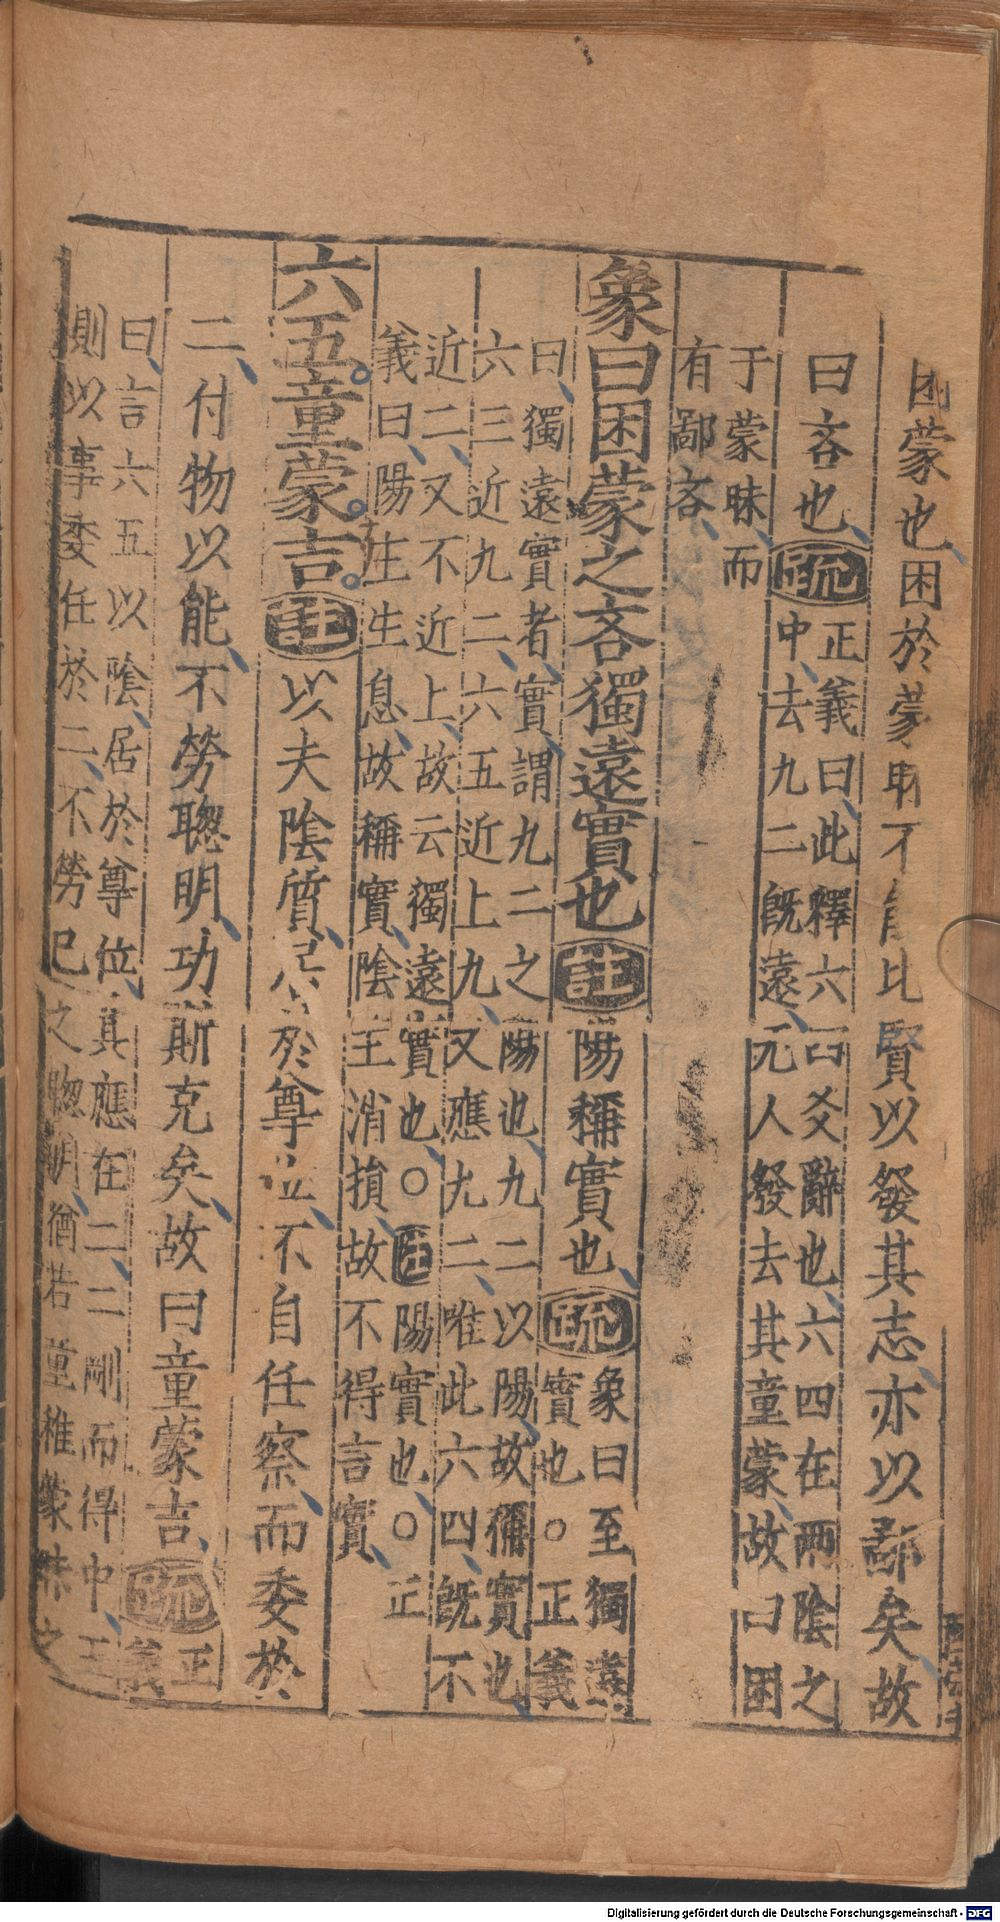 困蒙也困於蒙昧不能比賢以發其志亦以鄙矣故
曰吝也疏正義曰此釋六四爻辭也六四在兩陰之
中去九二既遠无人發去其童蒙故曰困
于蒙昧而
有鄙吝
象曰困蒙之吝獨遠實也註陽稱實也疏象曰至獨遠
實也○正義
曰獨遠實者實謂九二之陽也九二以陽故稱實也
六三近九二六五近上九又應九二唯此六四既不
近二又不近上故云獨遠實也○註陽實也○正
義曰陽主生息故稱實陰主消損故不得言實
六五童蒙吉註以夫陰質居於尊位不自任察而委於
二付物以能不勞聰明功斯克矣故曰童蒙吉疏正
義
曰言六五以陰居於尊位其應在二二剛而得中五
則以事委任於二不勞己之聰明猶若童稚蒙昧之
Digitalisierung gefördert durch die Deutsche Forschungsgemeinschaft - DFG